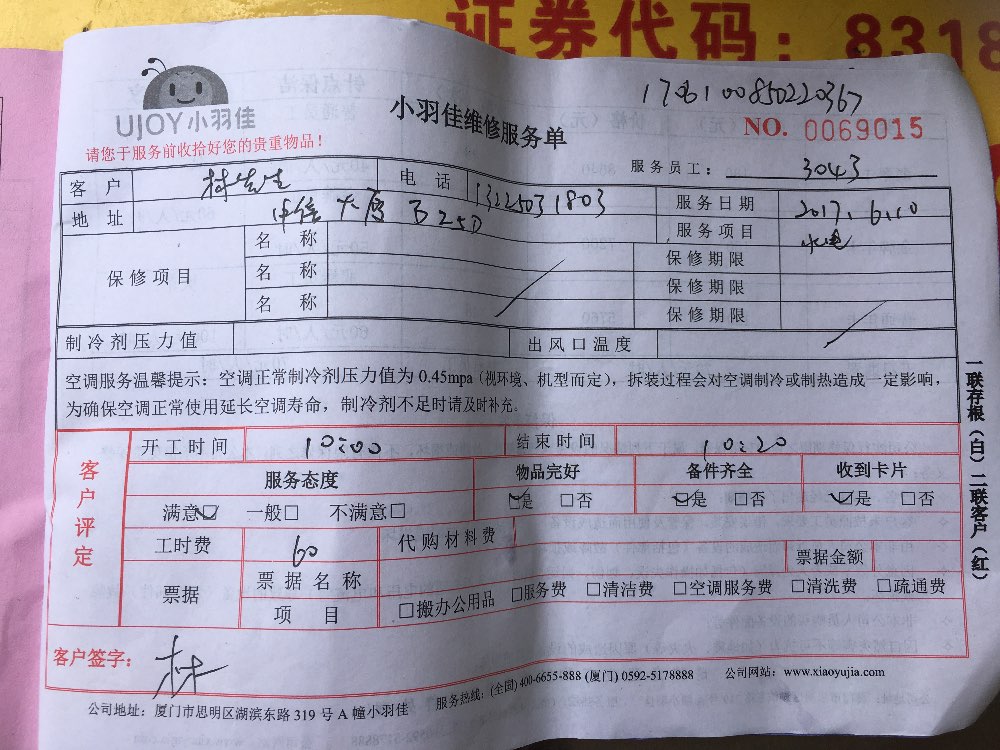 证券代码：8318
UJOY小羽佳
小羽佳维修服务单
1706100850220367
NO. 0069015
请您于服务前收拾好您的贵重物品！
服务员工： 3043
客 户 林先生 电 话 13225031803 服务日期 2017.6.10
地 址 大厦 B25D 服务项目 水电
保修项目 名 称 保修期限
名 称 保修期限
名 称 保修期限
制冷剂压力值 出风口温度
空调服务温馨提示：空调正常制冷剂压力值为 0.45mpa（视环境、机型而定），拆装过程会对空调制冷或制热造成一定影响，
为确保空调正常使用延长空调寿命，制冷剂不足时请及时补充。
客户评定
开工时间 10:00 结束时间 10:20
服务态度 物品完好 备件齐全 收到卡片
满意☑ 一般□ 不满意□ ☑是 □否 ☑是 □否 ☑是 □否
工时费 60 代购材料费
票据 票据名称 票据金额
项 目 □搬办公用品 □服务费 □清洁费 □空调服务费 □清洗费 □疏通费
客户签字： 林
公司地址：厦门市思明区湖滨东路 319 号 A 幢小羽佳 服务热线：(全国) 400-6655-888 (厦门) 0592-5178888 公司网站：www.xiaoyujia.com
一联存根（白）二联客户（红）